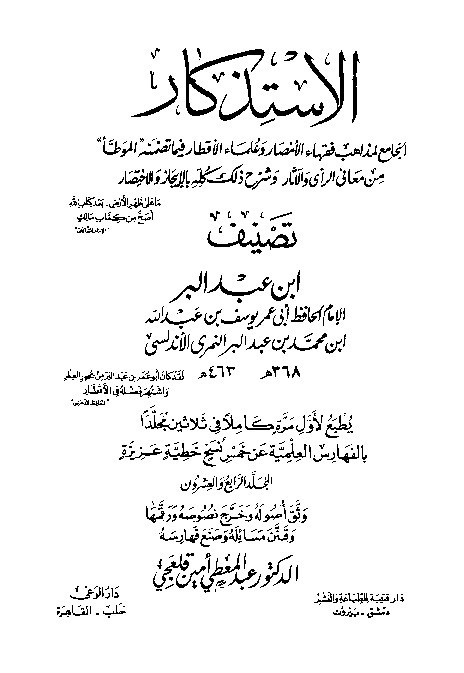 الاستذكار
الجامع لمذاهب فقهاء الأمصار وعلماء الأقطار فيما تضمنه "الموطأ"
من معاني الرأي والآثار وشرح ذلك كله بالإيجاز والاختصار
ما على ظهر الأرض - بعد كتاب الله
أصح من كتاب مالك
تصنيف
ابن عبد البر
الإمام الحافظ أبي عمر يوسف بن عبد الله
ابن محمد بن عبد البر النمري الأندلسي
٣٦٨هـ ٤٦٣هـ
لقد كان أبو عمر بن عبد البر من بحور العلم
واشتهر فضله في الأقطار
يطبع لأول مرة كاملا في ثلاثين مجلدا
بالفهارس العلمية عن خمس نسخ خطية عزيزة
المجلد الرابع والعشرون
وثق أصوله وخرج نصوصه ورقمها
وقنن مسائله وصنع فهارسه
الدكتور عبد المعطي أمين قلعجي
دار قتيبة للطباعة والنشر
دمشق - بيروت
دار الوعي
حلب - القاهرة